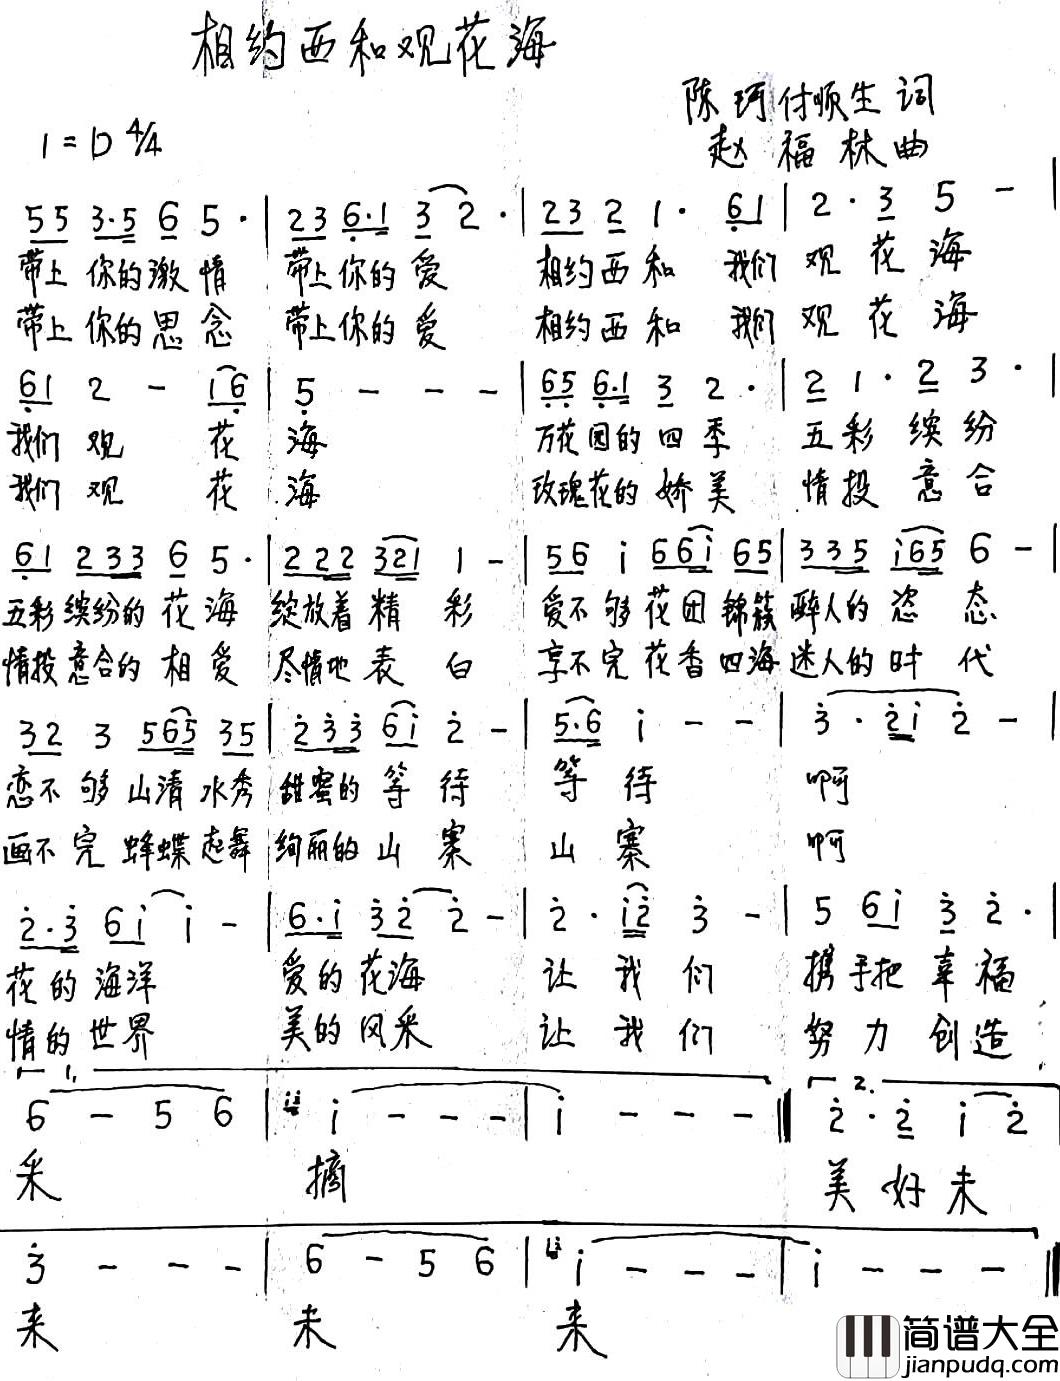 相约西和观花海
陈珂付顺生词
赵福林曲
1=D 4/4
55 3·5 6 5· | 23 6·1 3 2· | 23 2 1· 61 | 2·3 5 - |
带上你的激情 带上你的爱 相约西和 我们 观花海
带上你的思念 带上你的爱 相约西和 我们 观花海
61 2 - 16 | 5 - - - | 65 6·1 3 2· | 2 1· 2 3· |
我们 观 花 海 万花园的四季 五彩缤纷
我们 观 花 海 玫瑰花的娇美 情投意合
61 233 6 5· | 222 321 1 - | 56 i 66i 65 | 335 i65 6 - |
五彩缤纷的花海 绽放着精彩 爱不够花团锦簇 醉人的姿态
情投意合的相爱 尽情地表白 享不完花香四海 迷人的时代
32 3 565 35 | 233 6i 2 - | 5·6 i - - | 3·2i 2 - |
恋不够山清水秀 甜蜜的等待 等待 啊
画不完蜂蝶起舞 绚丽的山寨 山寨 啊
2·3 6i i - | 6·i 32 2 - | 2·i2 3 - | 5 6i 3 2· |
花的海洋 爱的花海 让我们 携手把幸福
情的世界 美的风采 让我们 努力创造
1. 2.
6 - 5 6 | i - - - | i - - - || 2·2 i 2
采 摘 美好未
3 - - - | 6 - 5 6 | i - - - | i - - - ||
来 未 来
简谱大全
jianpudq.com